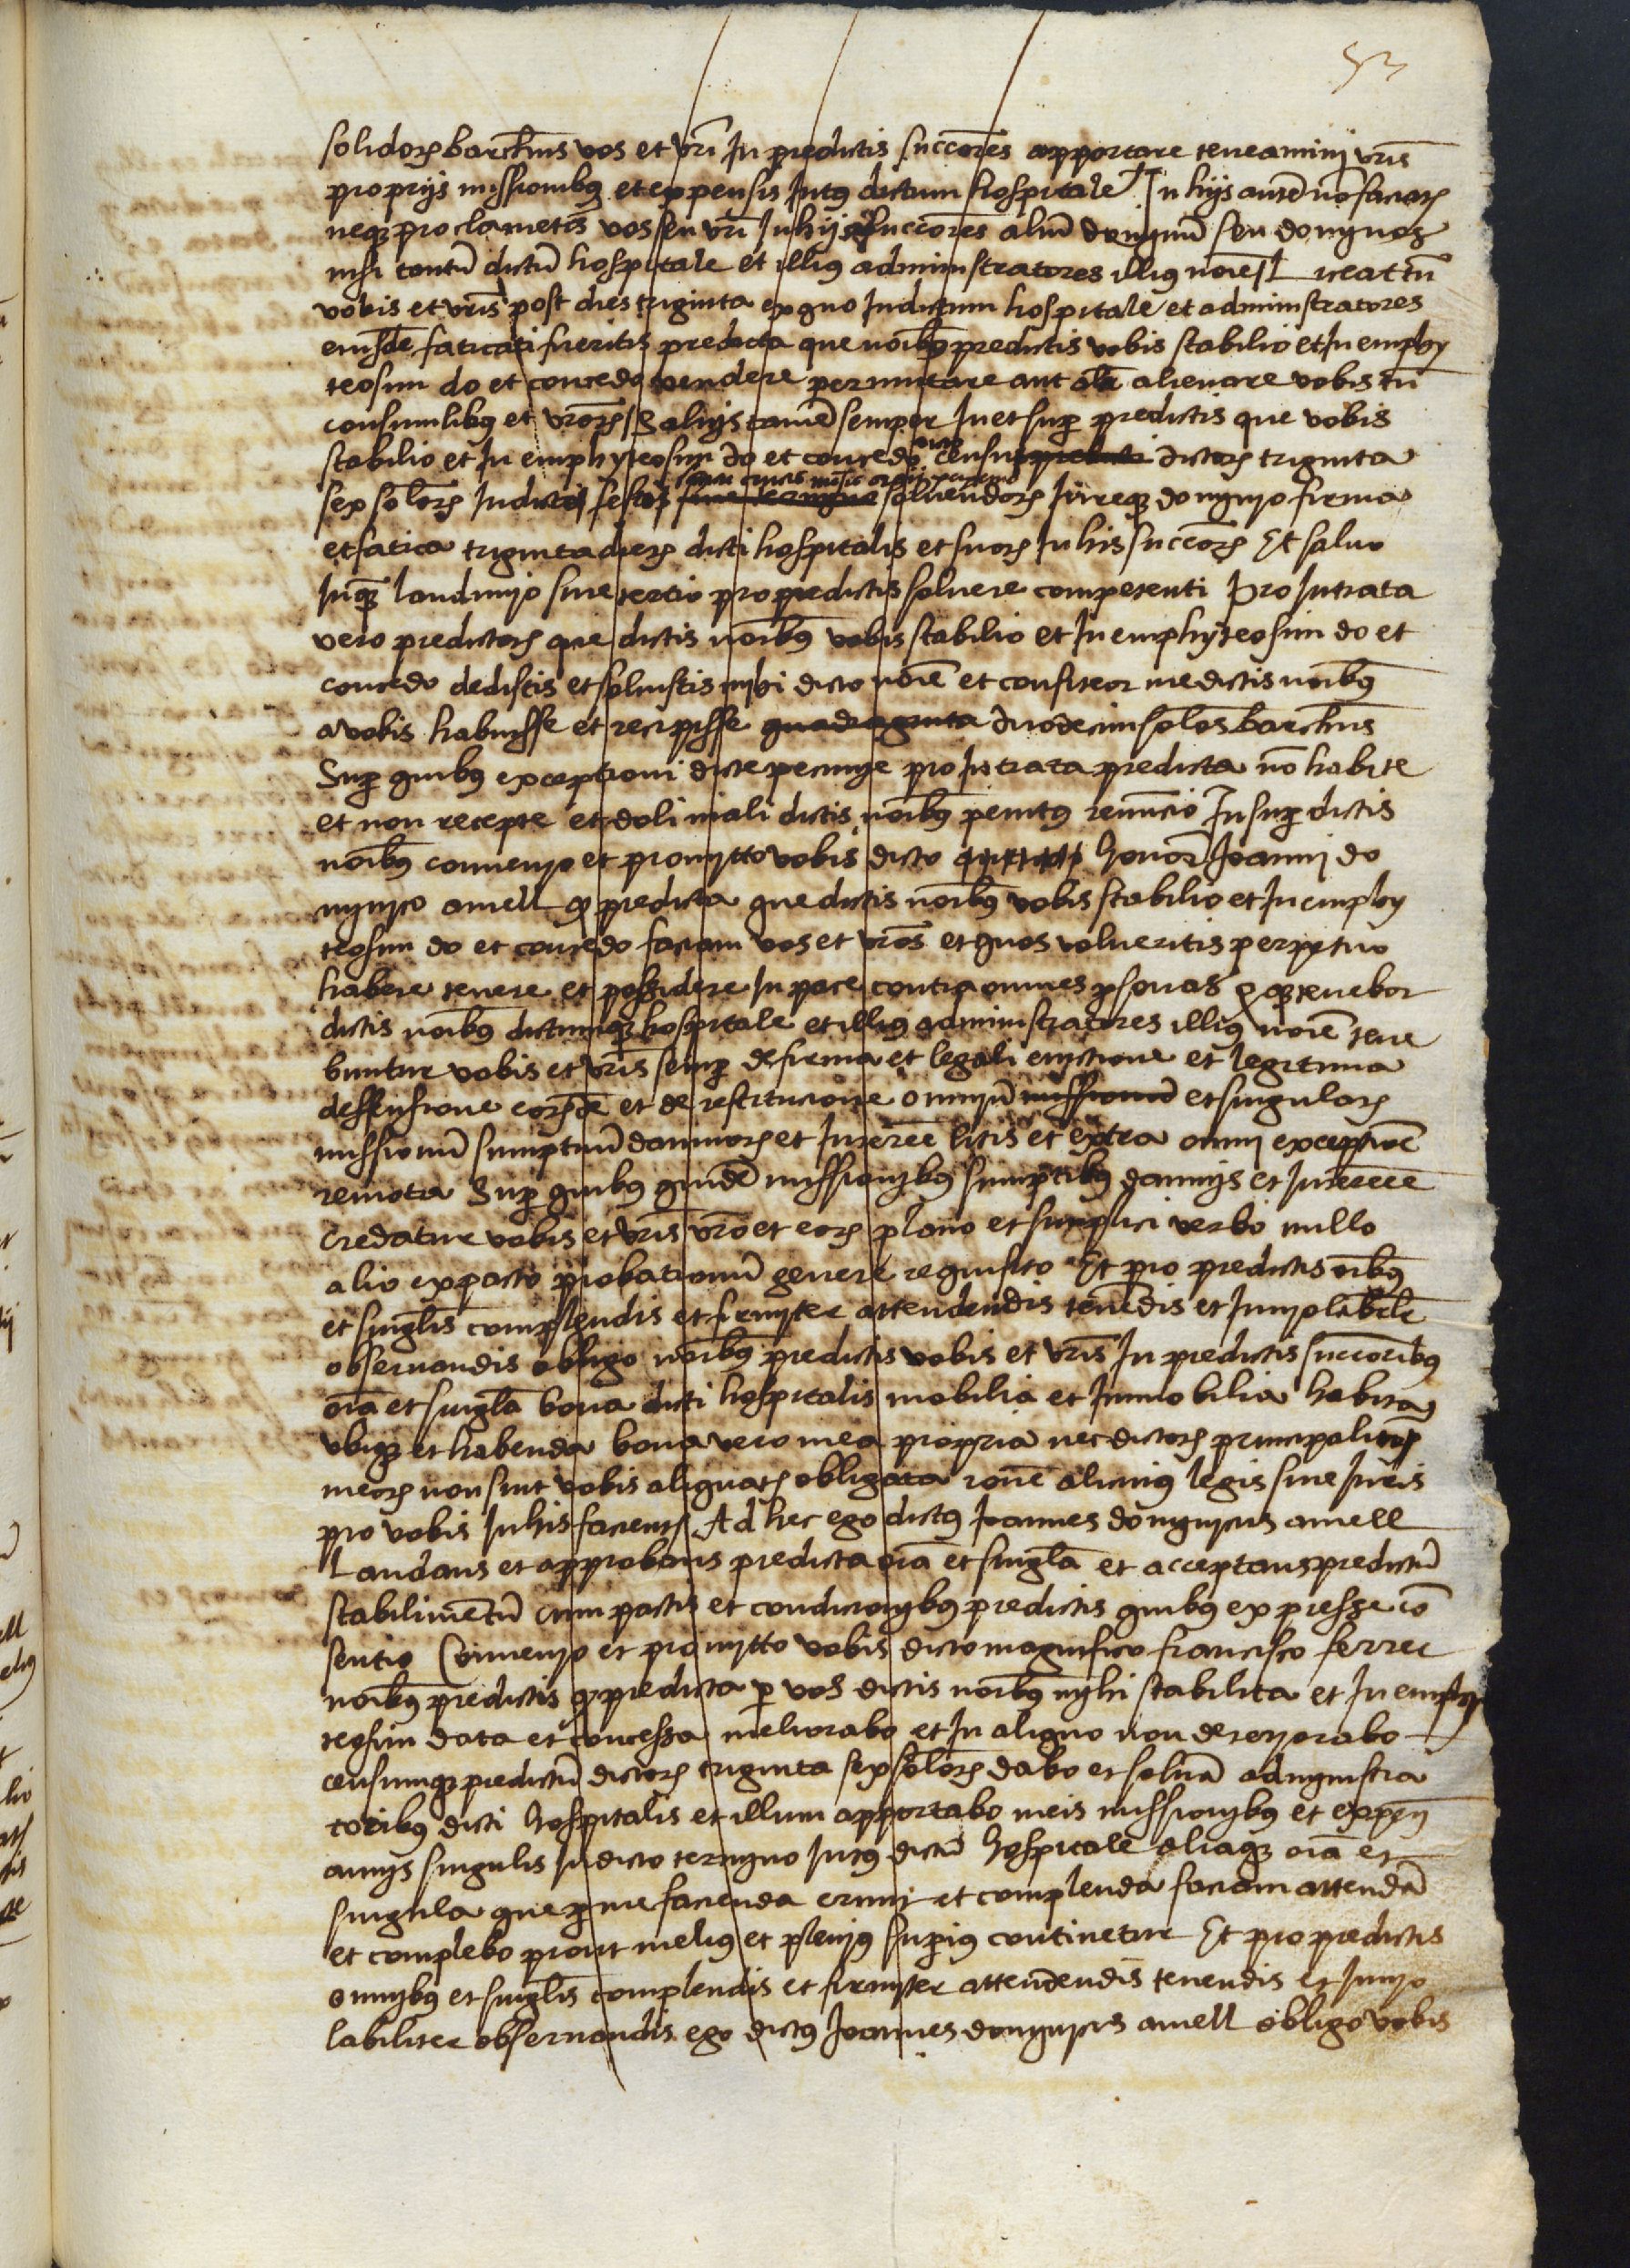 53
solidorum barchinonensium vos et vri In predictis successores apportare teneamini vris
proprijs missionibus et expensis Intus dictum hospitale In hijs autem non faciatis
neque proclametis vos seu vri In hijs successores alium dominum seu dominos
nisi tantum dictum hospitale et illius administratores illius noie Liceat tn
vobis et vris post dies triginta ex quo Indictum hospitale et administratores
eiusde faticati fueritis predicta que noibus predictis vobis stabilio et In emphy
teosim do et concedo vendere permutare aut als alienare vobis tn
consimilibus et vrorum Saluijs tame semper In et sup predictis que vobis
stabilio et In emphyteosim do et concedo dicto censu dictorum triginta
sex solorum Indicto festo soluendorum Iureque dominio firma
et fatica triginta dierum dicti hospitalis et suorum In his succorum Et saluo
Inque laudimio siue tertio pro predictis soluere competenti Pro Intrata
vero predictorum que dictis noibus vobis stabilio et In emphyteosim do et
concedo dedistis et soluistis mihi dicto noie et confiteor me dictis noibus
a vobis habuisse et recepisse quadraginta duodecim solos barchns
Sup quibus exceptioni dicte pecunie pro Intrata predicta no habite
et non recepte et doli mali dictis noibus penitus renuncio Insup dictis
noibus convenio et promitto vobis dicto honor Joanni do
minico amell q predicta que dictis noibus vobis stabilio et In emphy
teosim do et concedo faciam vos et vros et quos volueritis perpetuo
habere tenere et possidere In pace contra omnes psonas Et que tenebor
dictis noibus dictumque hospitale et illius administratores illius noie tene
buntur vobis et vris semp de firma et legali euictione et legitima
deffensione eorumde et de restitucione omnium missionum et singulorum
missionum sumptuum damnorum et Interecce litis et extra omni exceptioe
remota Sup quibus quide missionibus sumptibus damnijs et Interecce
credatur vobis et vris vro et eorum plano et simplici verbo nullo
alio ex pacto probationum genere requisito Et pro predictis oibus
et singlis complendis et firmiter attendendis tenedis et Inuiolabilr
obseruandis obligo noibus predictis vobis et vris In predictis successoribus
oia et singla bona dicti hospitalis mobilia et Immobilia habita
vbique et habenda bona vero mea propria nec dictorum principalium
meorum non sint vobis aliquatenus obligata roe alicuius legis siue Iuris
pro vobis In his facientis Ad hec ego dictus Joannes dominicus amell
Laudans et approbans predicta oia et singla et acceptans predictu
stabilimentu cum pactis et condicionibus predictis quibus expresse co
sentio Convenio et promitto vobis dicto magnifico francisco ferrer
noibus predictis q predicta p vos dictis noibus mihi stabilita et In emphy
teosim data et concessa meliorabo et In aliquo non deteriorabo
censumque predictu dictorum triginta sex solorum dabo et soluam administra
toribus dicti hospitalis et illum apportabo meis missionibus et expen
annijs singulis Indicto termino Intus dictu hospitale aliaque oia et
singula que p me facienda erunt et complenda faciam attenda
et complebo prout melius et plenius supius continetur Et pro predictis
omnibus et singlis complendis et firmiter attendendis tenendis et Inuio
labiliter obseruandis ego dictus Joannes dominicus amell obligo vobis